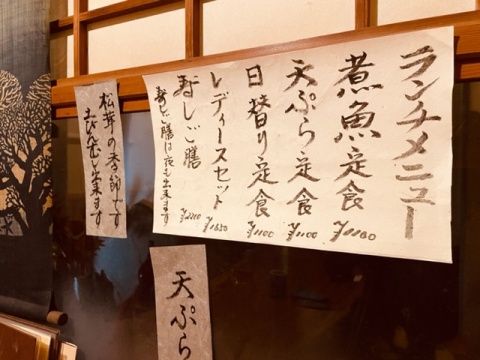 ランチメニュー
煮魚定食 ¥1180
天ぷら定食 ¥1100
日替り定食 ¥1100
レディースセット ¥1650
寿しご膳 ¥2200
寿しご膳は夜も出来ます
松茸の季節です
土びん蒸し出来ます
天ぷら